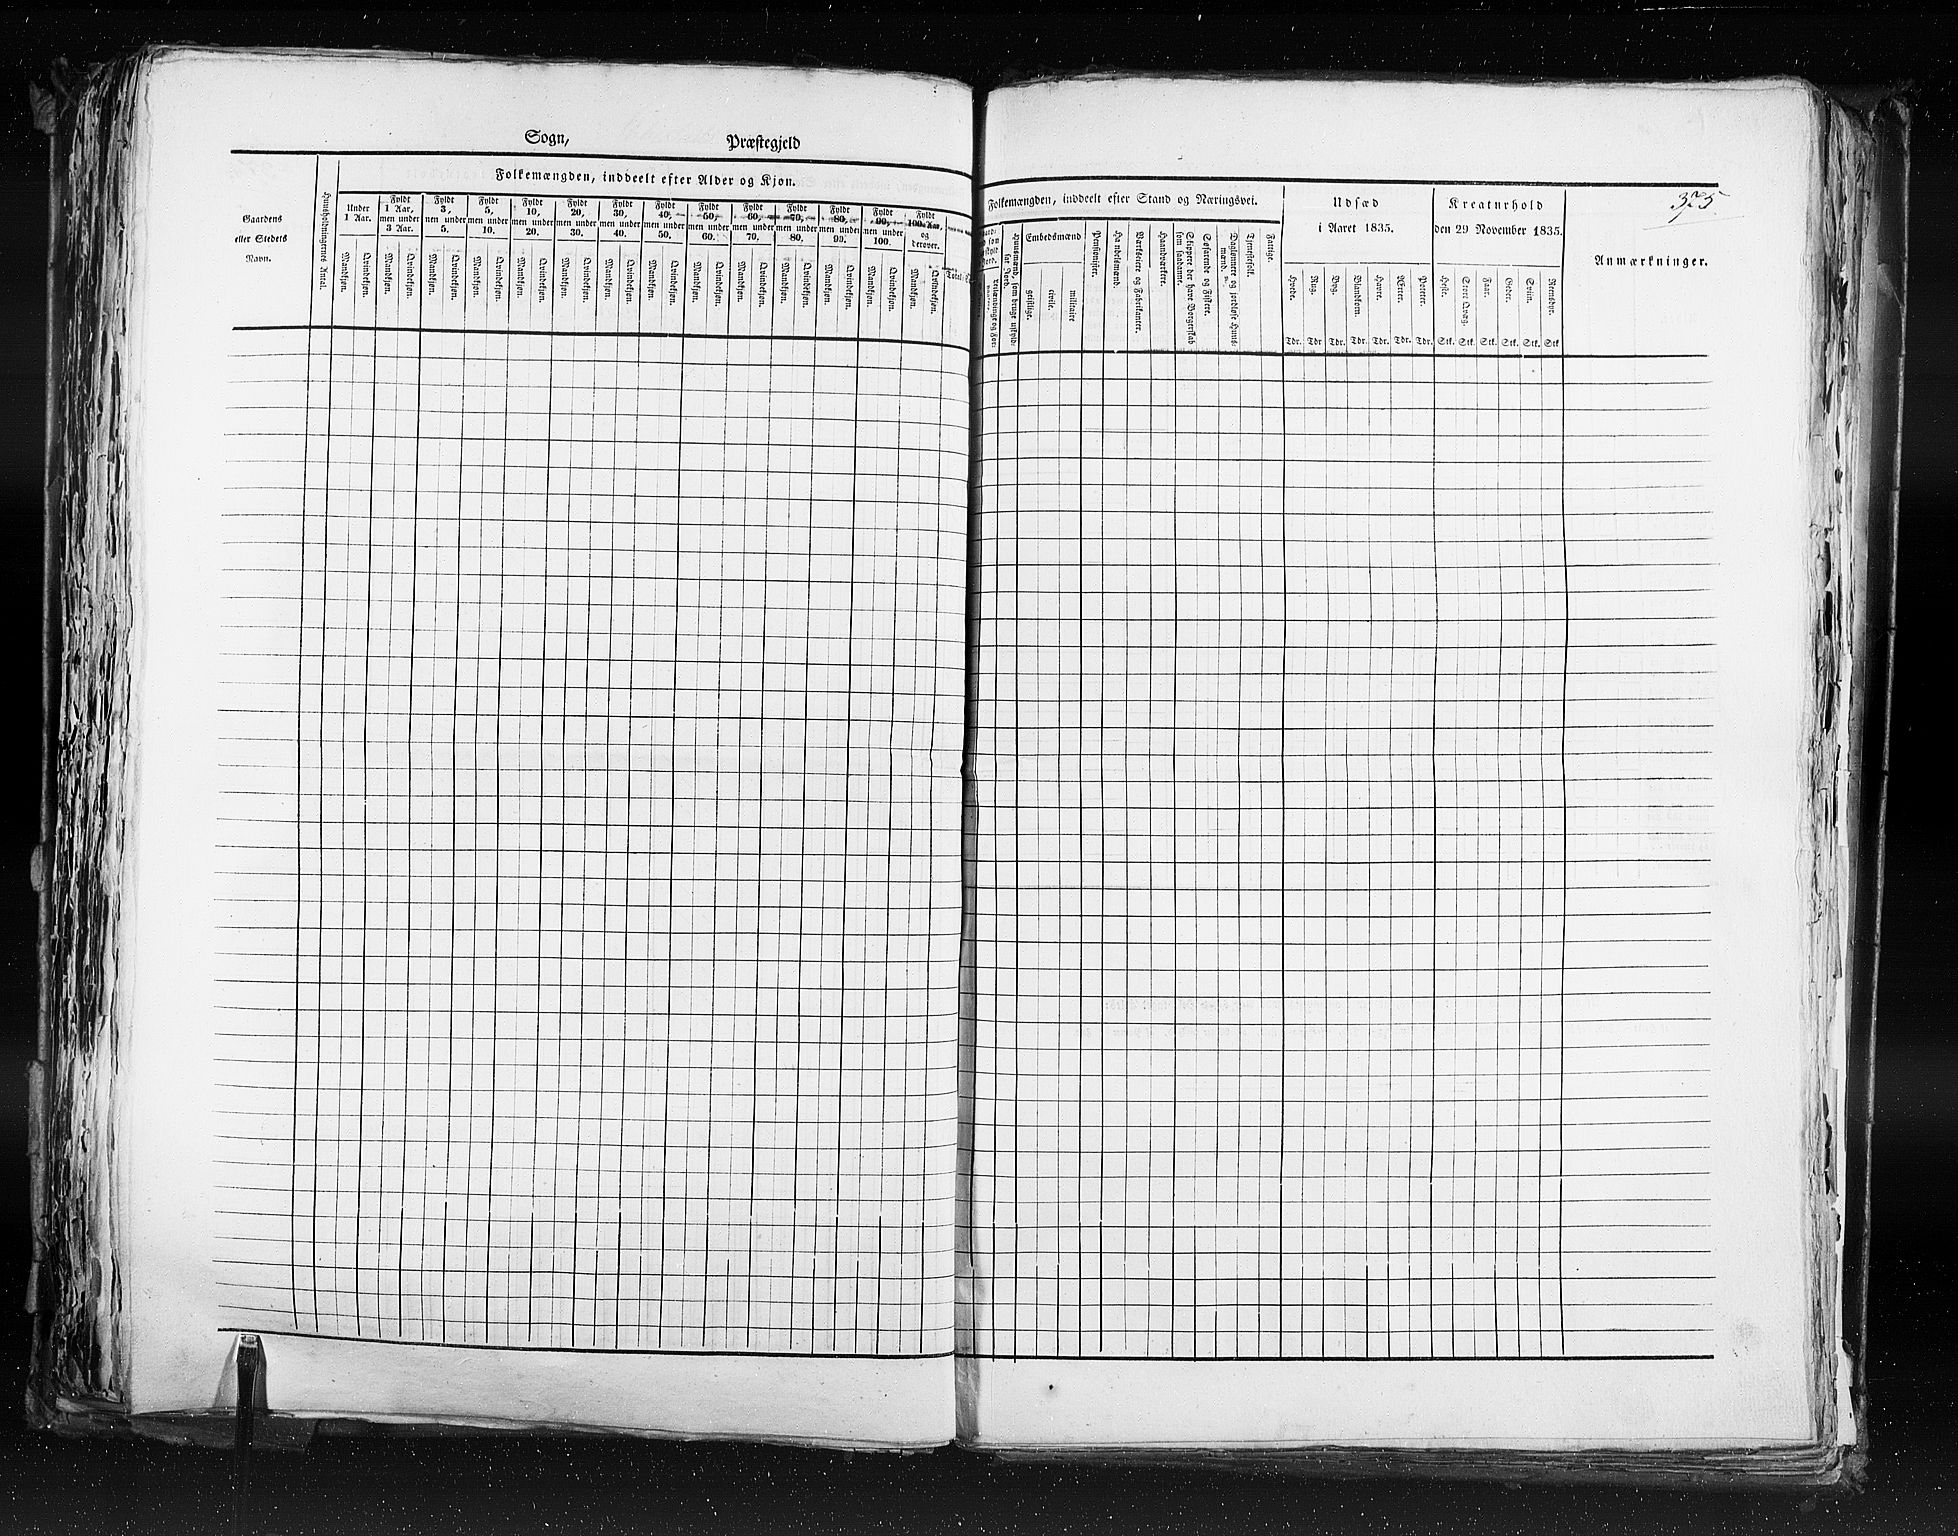 Sogn, Præstegjeld
375.
Gaardens
eller Stedets
Navn.
Huusholdningernes Antal.
Folkemængden, inddeelt efter Alder og Kjøn.
Under
1 Aar.
Fyldt
1 Aar,
men under
3 Aar.
Fyldt
3,
men under
5.
Fyldt
5,
men under
10.
Fyldt
10,
men under
20.
Fyldt
20,
men under
30.
Fyldt
30,
men under
40.
Fyldt
40,
men under
50.
Fyldt
50,
men under
60.
Fyldt
60,
men under
70.
Fyldt
70,
men under
80.
Fyldt
80,
men under
90.
Fyldt
90,
men under
100.
Fyldt
100 Aar,
og
derover.
Mandkjøn. Qvindekjøn. Mandkjøn. Qvindekjøn. Mandkjøn. Qvindekjøn. Mandkjøn. Qvindekjøn. Mandkjøn. Qvindekjøn. Mandkjøn. Qvindekjøn. Mandkjøn. Qvindekjøn. Mandkjøn. Qvindekjøn. Mandkjøn. Qvindekjøn. Mandkjøn. Qvindekjøn. Mandkjøn. Qvindekjøn. Mandkjøn. Qvindekjøn. Mandkjøn. Qvindekjøn. Mandkjøn. Qvindekjøn.
Total
Folkemængden, inddeelt efter Stand og Næringsvei.
Huusmænd, som bruge uskyld-
sat Jord.
Embedsmænd
geistlige.
civile.
militaire
Pensionister.
Handelsmænd.
Værkseiere
og Fabrikanter.
Haandværkere.
Skippere der have Borgerskab
som saadanne.
Søfarende og Fiskere.
Daglønnere og jordløse Huus-
mænd.
Tjenestefolk.
Fattige.
Udsæd
i Aaret 1835.
Hvede. Rug. Byg. Blandkorn. Havre. Ærter. Poteter.
Tdr. Tdr Tdr. Tdr. Tdr. Tdr. Tdr.
Kreaturhold
den 29 November 1835.
Heste. Stort Qvæg. Faar. Geder. Sviin. Rensdyr.
Stk. Stk. Stk. Stk. Stk. Stk
Anmærkninger.